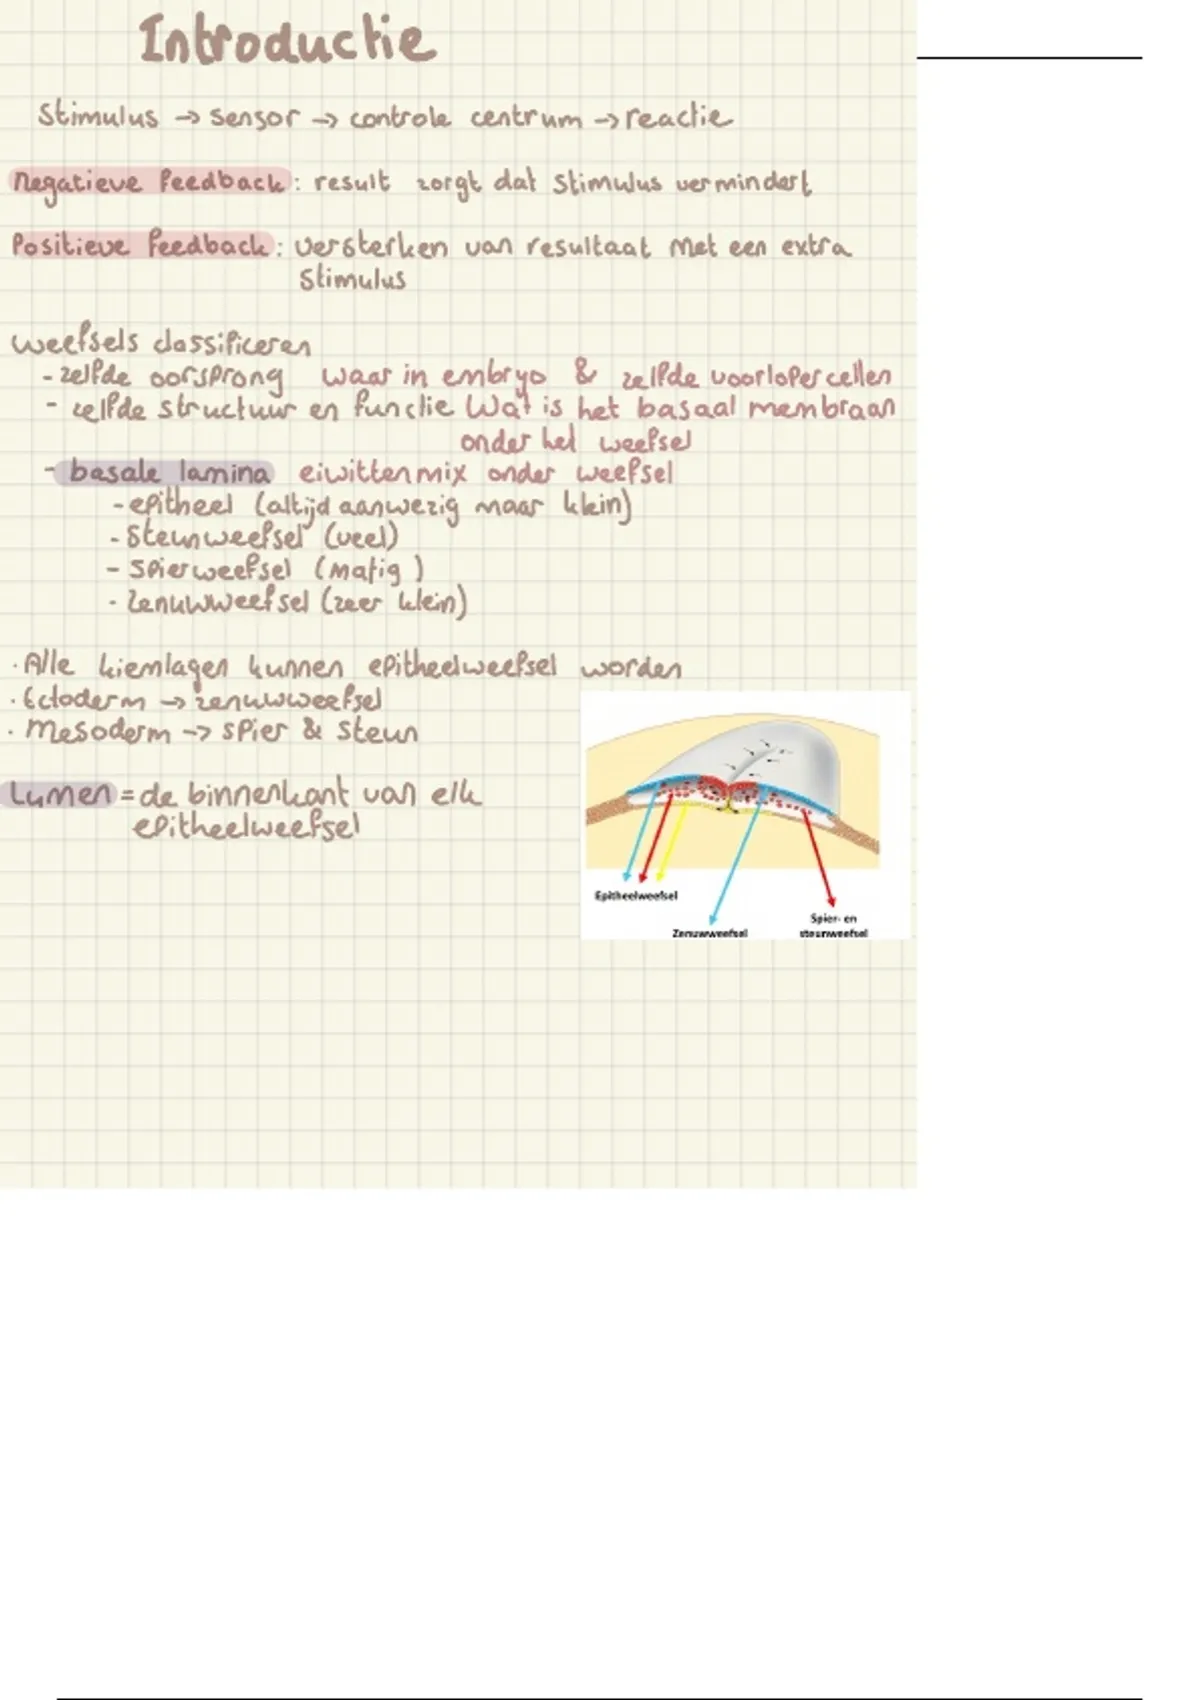 Introductie
Stimulus → sensor → controle centrum → reactie
Negatieve feedback: result zorgt dat stimulus vermindert
Positieve feedback: versterken van resultaat met een extra
stimulus
weefsels classificeren
- zelfde oorsprong waar in embryo & zelfde voorlopercellen
- zelfde structuur en functie Wat is het basaal membraan
onder het weefsel
- basale lamina eiwittenmix onder weefsel
- epitheel (altijd aanwezig maar klein)
- Steunweefsel (veel)
- Spierweefsel (matig)
- Zenuwweefsel (zeer klein)
· Alle kiemlagen kunnen epitheelweefsel worden
· Ectoderm → zenuwweefsel
· Mesoderm → spier & steun
Lumen = de binnenkant van elk
epitheelweefsel
Epitheelweefsel
Zenuwweefsel
Spier- en
steunweefsel